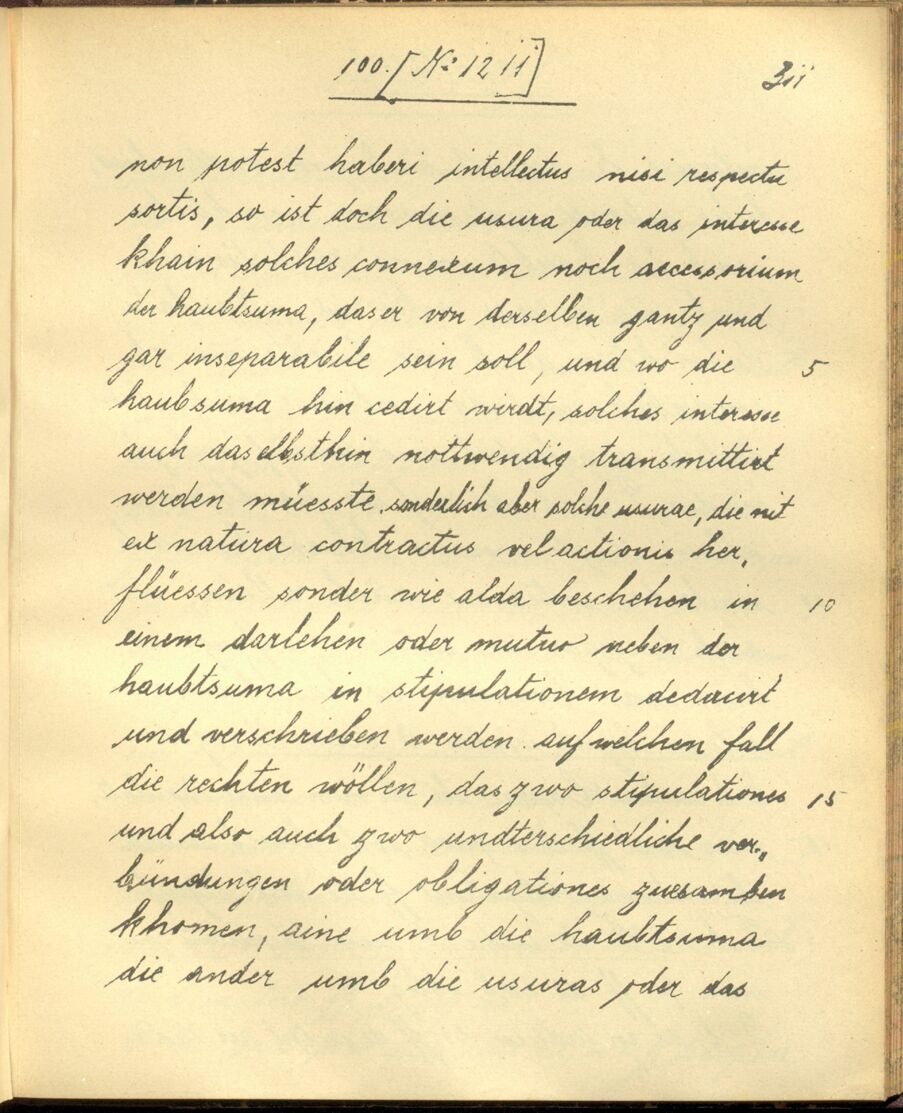 100. [N: 12 11]
311
non potest haberi intellectus nisi respectu
sortis, so ist doch die usura oder das interesse
khain solches connexum noch accessorium
der haubtsuma, das er von derselben gantz und
gar inseparabile sein soll, und wo die 5
haubsuma hin cedirt wirdt, solches interesse
auch daselbsthin nottwendig transmittirt
werden müesste. sonderlich aber solche usurae, die nit
ex natura contractus vel actionis her,
flüessen sonder wie alda beschehen in 10
einem darlehen oder mutuo neben der
haubtsuma in stipulationem deducirt
und verschrieben werden. auf welchen fall
die rechten wöllen, das zwo stipulationes 15
und also auch zwo undterschiedliche ver„
bündungen oder obligationes zuesamben
khomen, aine umb die haubtsuma
die ander umb die usuras oder das